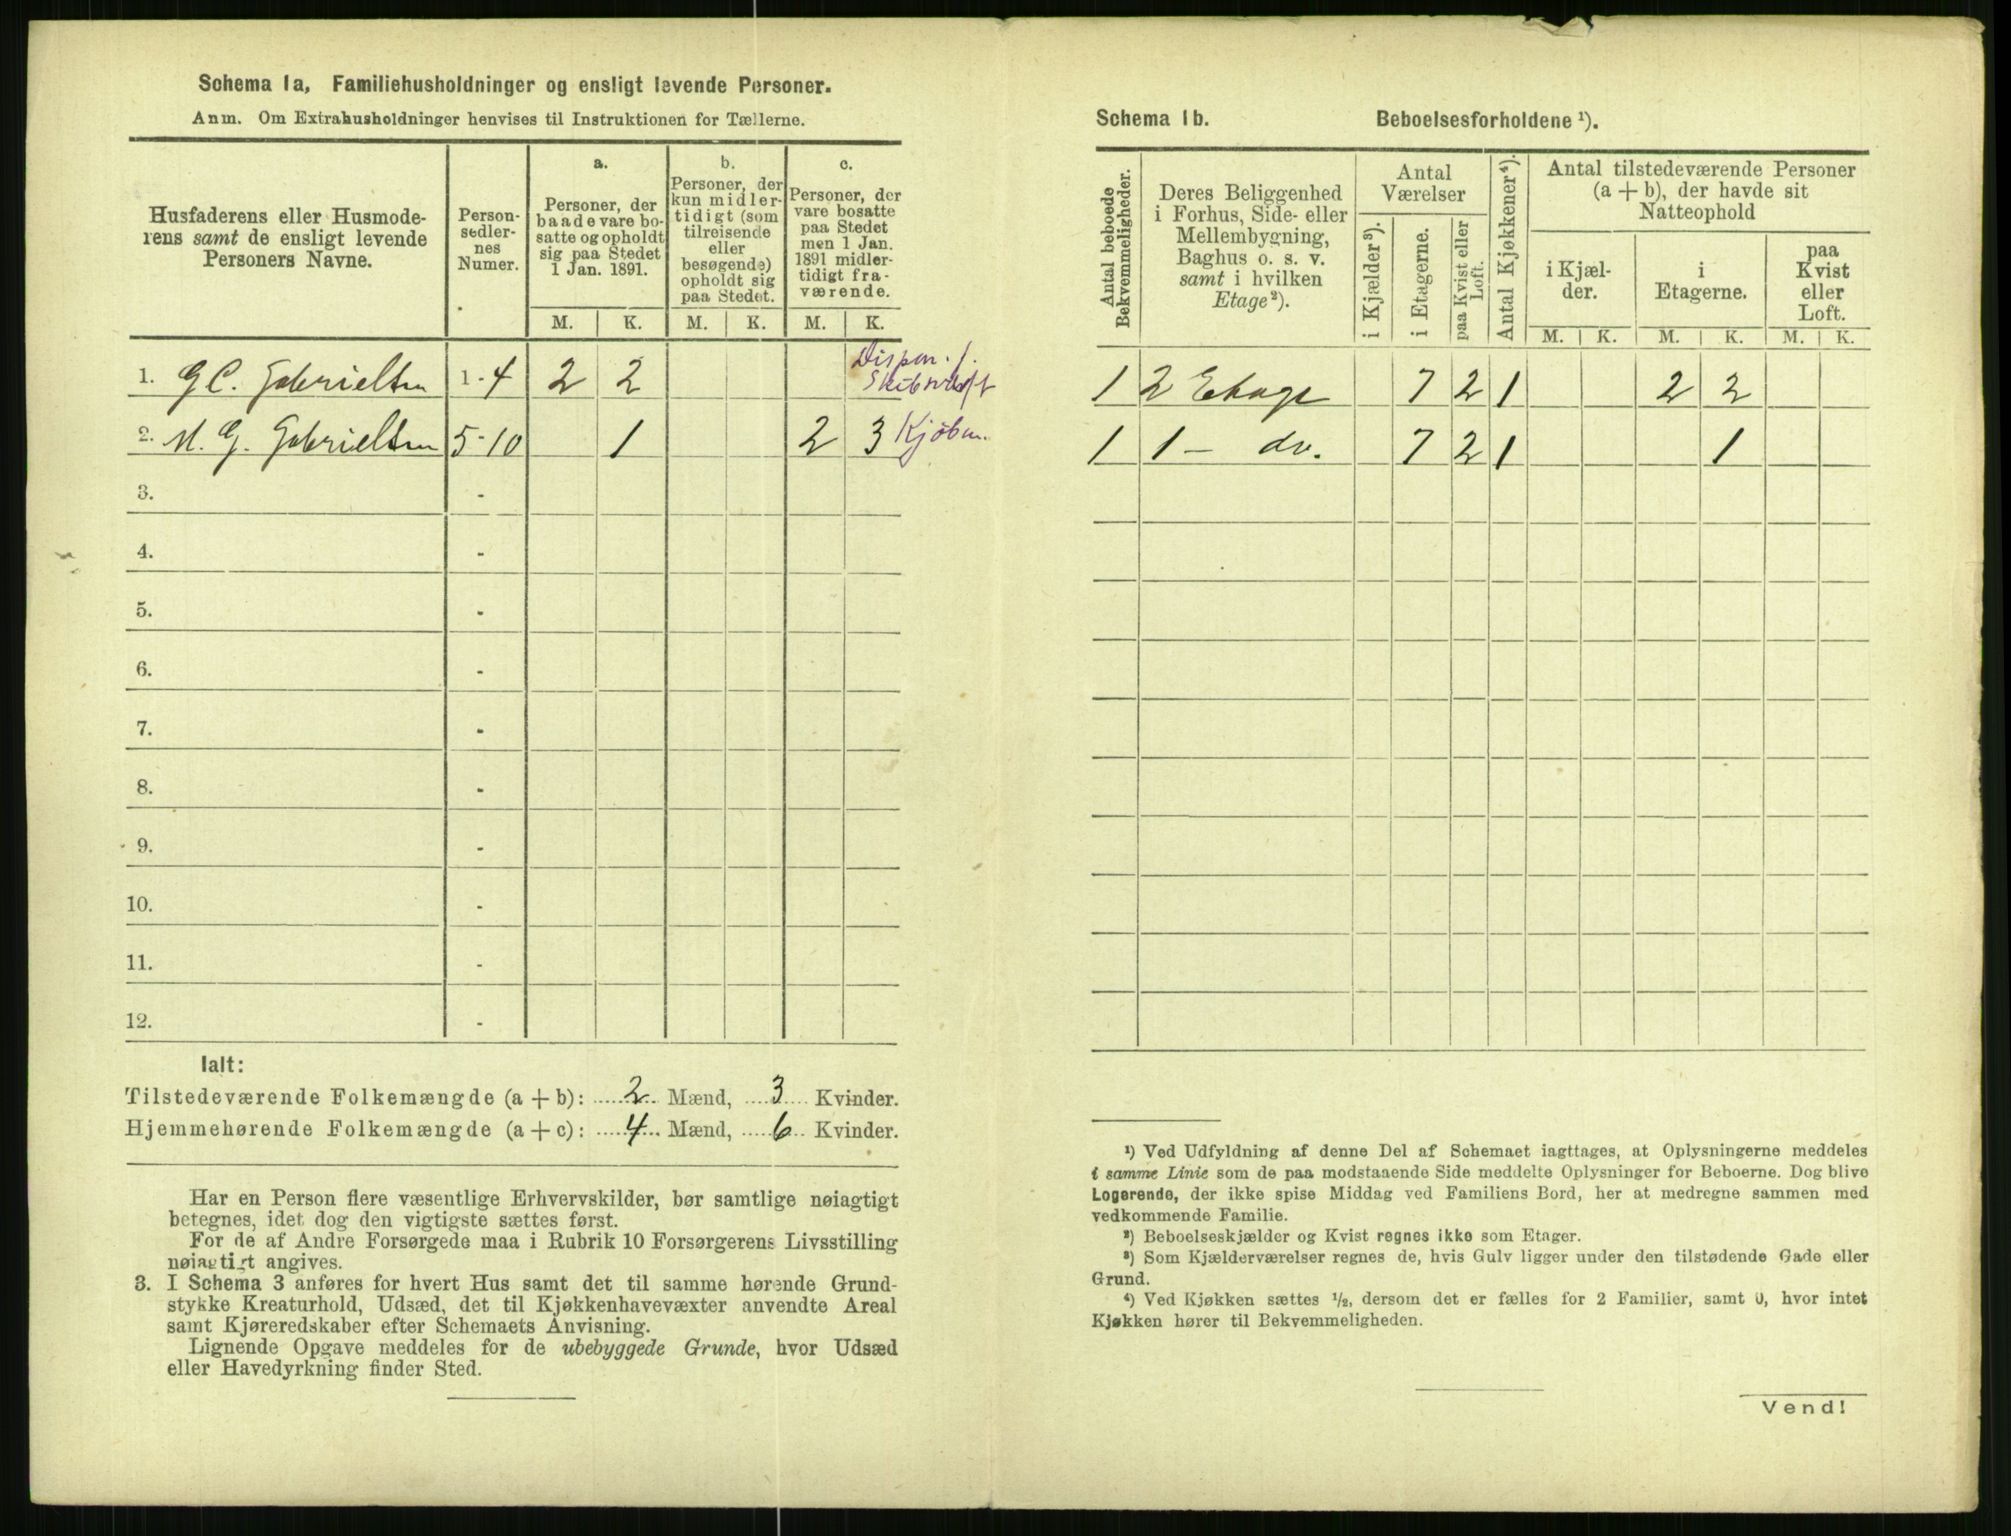 Schema 1a, Familiehusholdninger og ensligt levende Personer.
Anm. Om Extrahusholdninger henvises til Instruktionen for Tællerne.
Husfaderens eller Husmode-
rens samt de ensligt levende
Personers Navne.
Person-
sedler-
nes
Numer.
a.
Personer, der
baade vare bo-
satte og opholdt
sig paa Stedet
1 Jan. 1891.
b.
Personer, der
kun midler-
tidigt (som
tilreisende
eller
besøgende)
opholdt sig
paa Stedet.
c.
Personer, der
vare bosatte
paa Stedet
men 1 Jan.
1891 midler-
tidigt fra-
værende.
M. K. M. K. M. K.
1. G C. Gabrielsen 1-4 2 2 Dispon. f.
2. M. G. Gabrielsen 5-10 1 2 3 Kjøbm.
3. -
4. -
5. -
6. -
7. -
8. -
9. -
10. -
11. -
12. -
Ialt:
Tilstedeværende Folkemængde (a + b): 2 Mænd, 3 Kvinder.
Hjemmehørende Folkemængde (a + c): 4 Mænd, 6 Kvinder.
Har en Person flere væsentlige Erhvervskilder, bør samtlige nøiagtigt
betegnes, idet dog den vigtigste sættes først.
For de af Andre Forsørgede maa i Rubrik 10 Forsørgerens Livsstilling
nøiagtigt angives.
3. I Schema 3 anføres for hvert Hus samt det til samme hørende Grund-
stykke Kreaturhold, Udsæd, det til Kjøkkenhavevæxter anvendte Areal
samt Kjøreredskaber efter Schemaets Anvisning.
Lignende Opgave meddeles for de ubebyggede Grunde, hvor Udsæd
eller Havedyrkning finder Sted.
Schema 1b. Beboelsesforholdene ¹).
Antal beboede
Bekvemmeligheder.
Deres Beliggenhed
i Forhus, Side- eller
Mellembygning,
Baghus o. s. v.
samt i hvilken
Etage ²).
Antal
Værelser
i Kjælder ³).
i Etagerne.
paa Kvist eller
Loft.
Antal Kjøkkener ⁴).
Antal tilstedeværende Personer
(a + b), der havde sit
Natteophold
i Kjæl-
der.
i
Etagerne.
paa
Kvist
eller
Loft.
M. K. M. K. M. K.
1 2 Etage 7 2 1 2 2
1 1 - do. 7 2 1 1
¹) Ved Udfyldning af denne Del af Schemaet iagttages, at Oplysningerne meddeles
i samme Linie som de paa modstaaende Side meddelte Oplysninger for Beboerne. Dog blive
Logerende, der ikke spise Middag ved Familiens Bord, her at medregne sammen med
vedkommende Familie.
²) Beboelseskjælder og Kvist regnes ikke som Etager.
³) Som Kjælderværelser regnes de, hvis Gulv ligger under den tilstødende Gade eller
Grund.
⁴) Ved Kjøkken sættes ½, dersom det er fælles for 2 Familier, samt 0, hvor intet
Kjøkken hører til Bekvemmeligheden.
Vend!